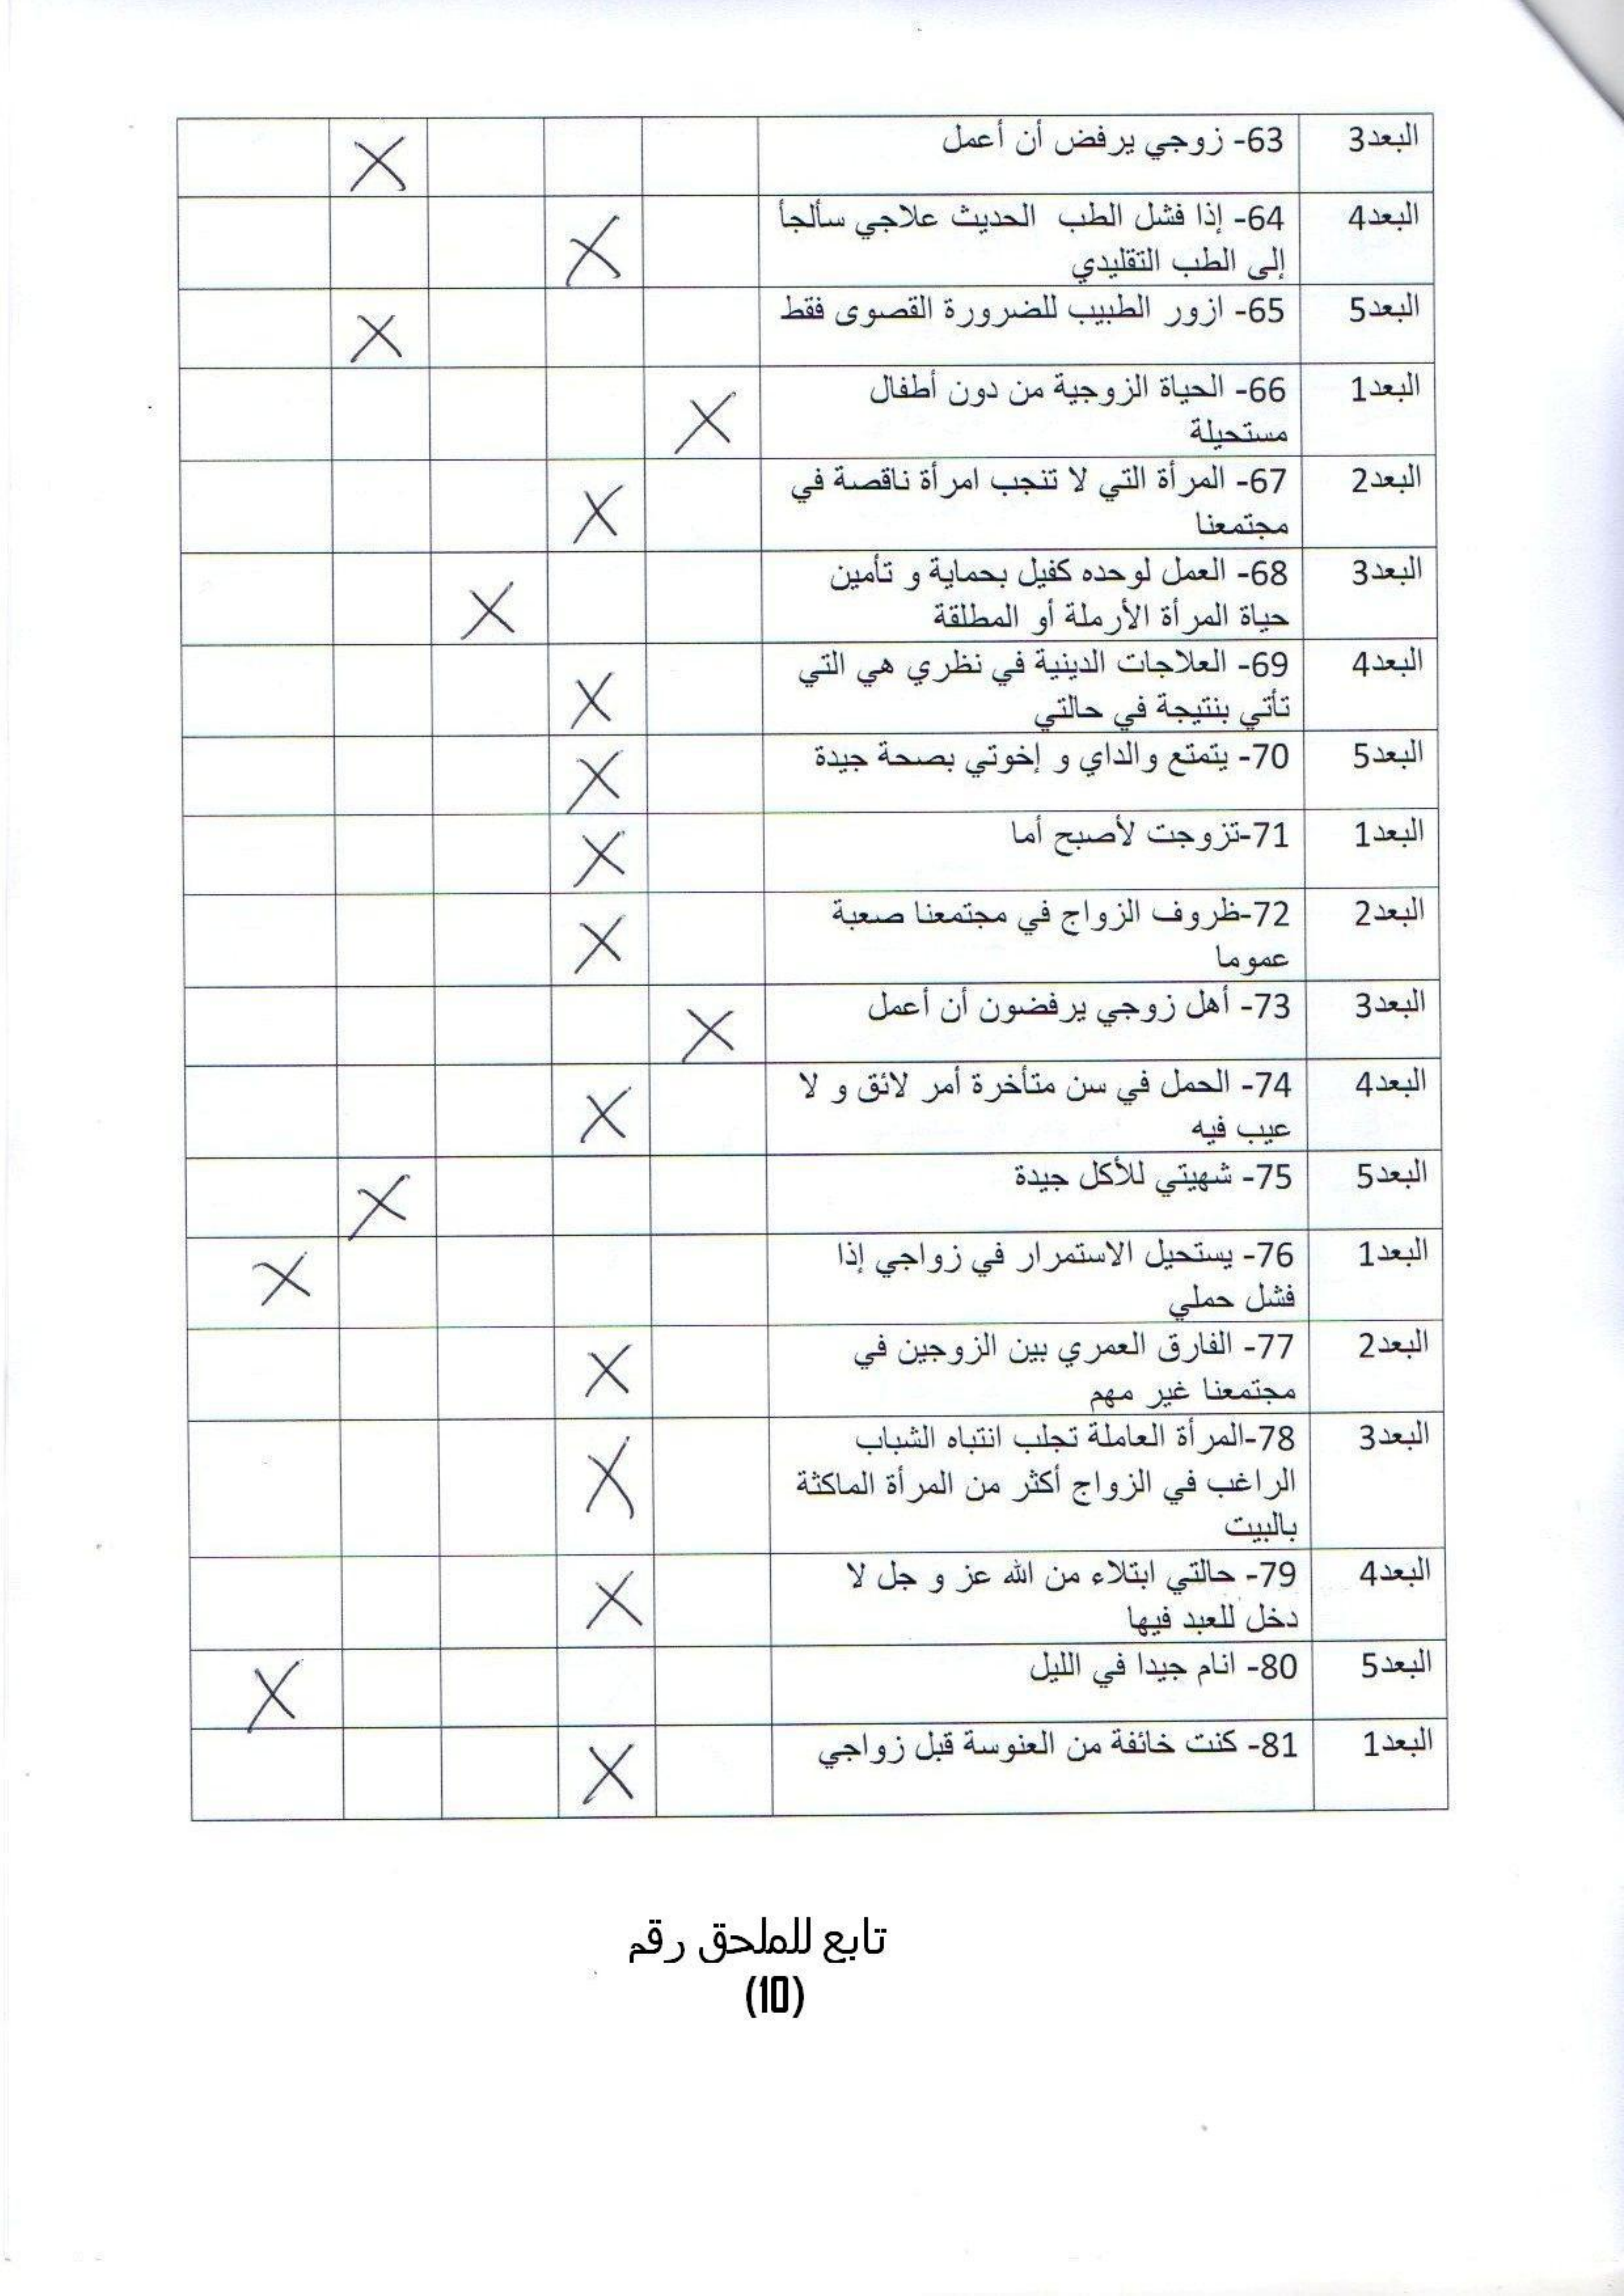 البعد3 63- زوجي يرفض أن أعمل X
البعد4 64- إذا فشل الطب الحديث علاجي سألجأ X
إلى الطب التقليدي
البعد5 65- ازور الطبيب للضرورة القصوى فقط X
البعد1 66- الحياة الزوجية من دون أطفال X
مستحيلة
البعد2 67- المرأة التي لا تنجب امرأة ناقصة في X
مجتمعنا
البعد3 68- العمل لوحده كفيل بحماية و تأمين X
حياة المرأة الأرملة أو المطلقة
البعد4 69- العلاجات الدينية في نظري هي التي X
تأتي بنتيجة في حالتي
البعد5 70- يتمتع والداي و إخوتي بصحة جيدة X
البعد1 71-تزوجت لأصبح أما X
البعد2 72-ظروف الزواج في مجتمعنا صعبة X
عموما
البعد3 73- أهل زوجي يرفضون أن أعمل X
البعد4 74- الحمل في سن متأخرة أمر لائق و لا X
عيب فيه
البعد5 75- شهيتي للأكل جيدة X
البعد1 76- يستحيل الاستمرار في زواجي إذا X
فشل حملي
البعد2 77- الفارق العمري بين الزوجين في X
مجتمعنا غير مهم
البعد3 78-المرأة العاملة تجلب انتباه الشباب X
الراغب في الزواج أكثر من المرأة الماكثة
بالبيت
البعد4 79- حالتي ابتلاء من الله عز و جل لا X
دخل للعبد فيها
البعد5 80- انام جيدا في الليل X
البعد1 81- كنت خائفة من العنوسة قبل زواجي X
تابع للملحق رقم
(10)